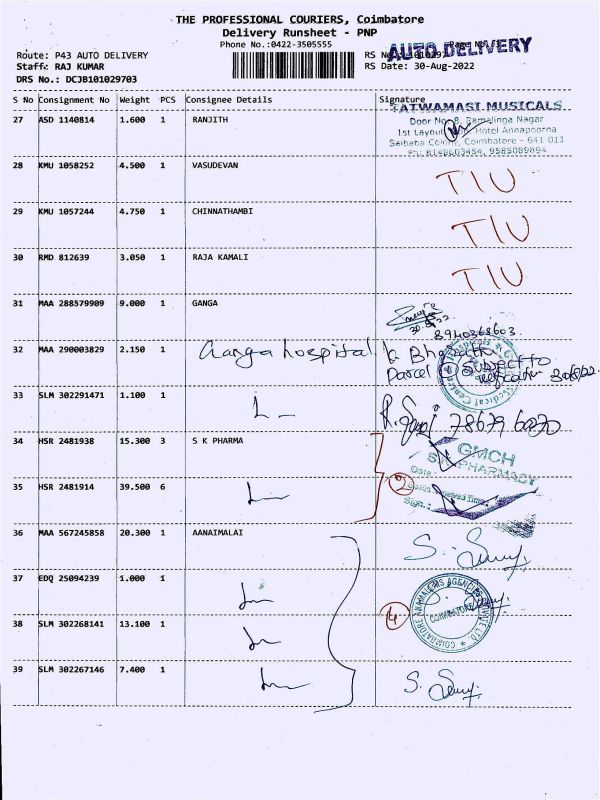 THE PROFESSIONAL COURIERS, Coimbatore
Delivery Runsheet - PNP
Phone No.:0422-3505555
AUTO DELIVERY
Route: P43 AUTO DELIVERY
Staff: RAJ KUMAR
RS Date: 30-Aug-2022
DRS No.: DCJB101029703
S No Consignment No Weight PCS Consignee Details Signature
TATWAMASI MUSICALS
27 ASD 1140814 1.600 1 RANJITH
Door No. 8, Ramalinga Nagar
1st Layout Hotel Annapoorna
Saibaba Colony, Coimbatore - 641 011
28 KMU 1058252 4.500 1 VASUDEVAN
TIU
29 KMU 1057244 4.750 1 CHINNATHAMBI
TIU
30 RMD 812639 3.050 1 RAJA KAMALI
TIU
31 MAA 288579909 9.000 1 GANGA
8940368603
32 MAA 290003829 2.150 1 Ganga hospital
Parcel subject to verification 30/8/22
33 SLM 302291471 1.100 1
78679 6070
34 HSR 2481938 15.300 3 S K PHARMA
GMCH
PHARMACY
Date:
35 HSR 2481914 39.500 6
2
Sign.:
36 MAA 567245858 20.300 1 AANAIMALAI
37 EDQ 25094239 1.000 1
COIMBATORE ANAMALAIS AGENCIES PRIVATE LTD.
COIMBATORE
4
38 SLM 302268141 13.100 1
39 SLM 302267146 7.400 1